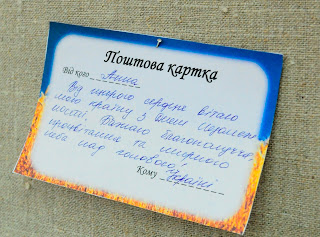 Поштова картка
Від кого Анна
Від щирого серця вітаю
мою країну з Днем Незалеж-
ності. Бажаю благополуччя,
процвітання та мирного
неба над головою!
Кому Україні